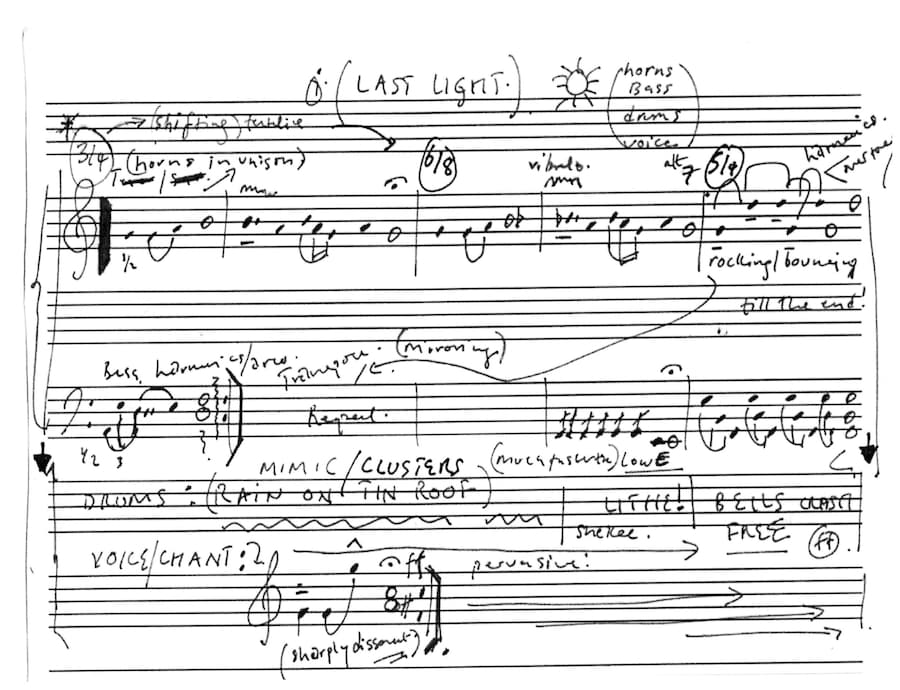 (LAST LIGHT.)
horns
Bass
drums
voice
(shifting)
3/4
(horns in unison)
6/8
vibrato.
5/4
harmonics.
1/2
rocking/bouncing
till the end!
Bass harmonics/arco.
(mirroring)
Repeat.
1/2 3
MIMIC/CLUSTERS
LOW E
DRUMS: (RAIN ON TIN ROOF)
LITHE!
BELLS CRASH
FREE
ff
VOICE/CHANT: 2
ff
pervasive!
(sharply dissonant)